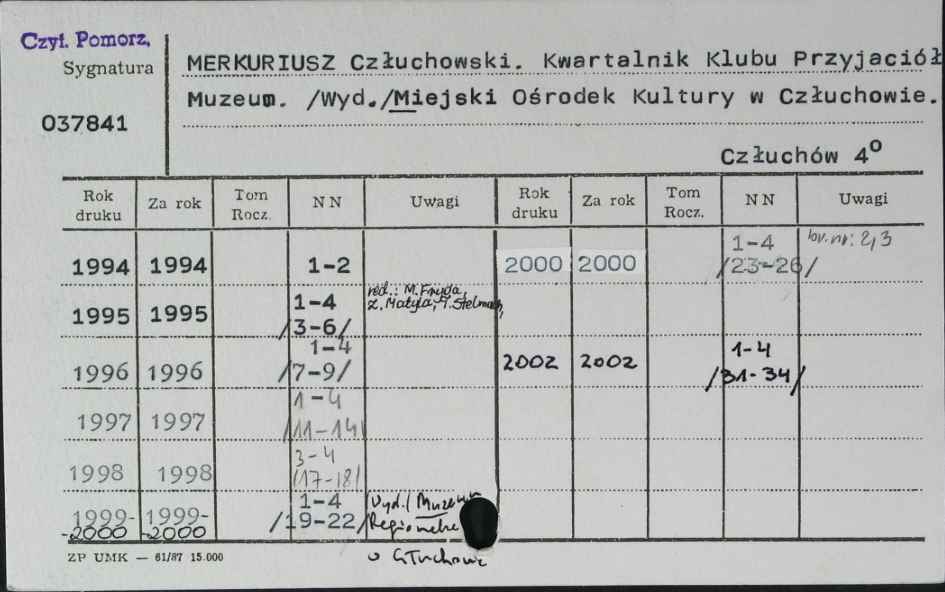 Czyt. Pomorz.
Sygnatura
037841
MERKURIUSZ Człuchowski. Kwartalnik Klubu Przyjaciół
Muzeum. /Wyd./Miejski Ośrodek Kultury w Człuchowie.
Człuchów 4°
Rok druku Za rok Tom Rocz. NN Uwagi Rok druku Za rok Tom Rocz. NN Uwagi
1994 1994 1-2
2000 2000 1-4 /23-26/ nr: 2,3
1995 1995 1-4 /3-6/ red.: M. Fryda, Z. Matyla, T. Stelmach,
1996 1996 1-4 /7-9/
2002 2002 1-4 /31-34/
1997 1997 1-4 /11-14/
1998 1998 3-4 /17-18/
1999-2000 1999-2000 1-4 /19-22/ Wyd./ Muzeum Regionalne
w Człuchowie
ZP UMK — 61/87 15.000